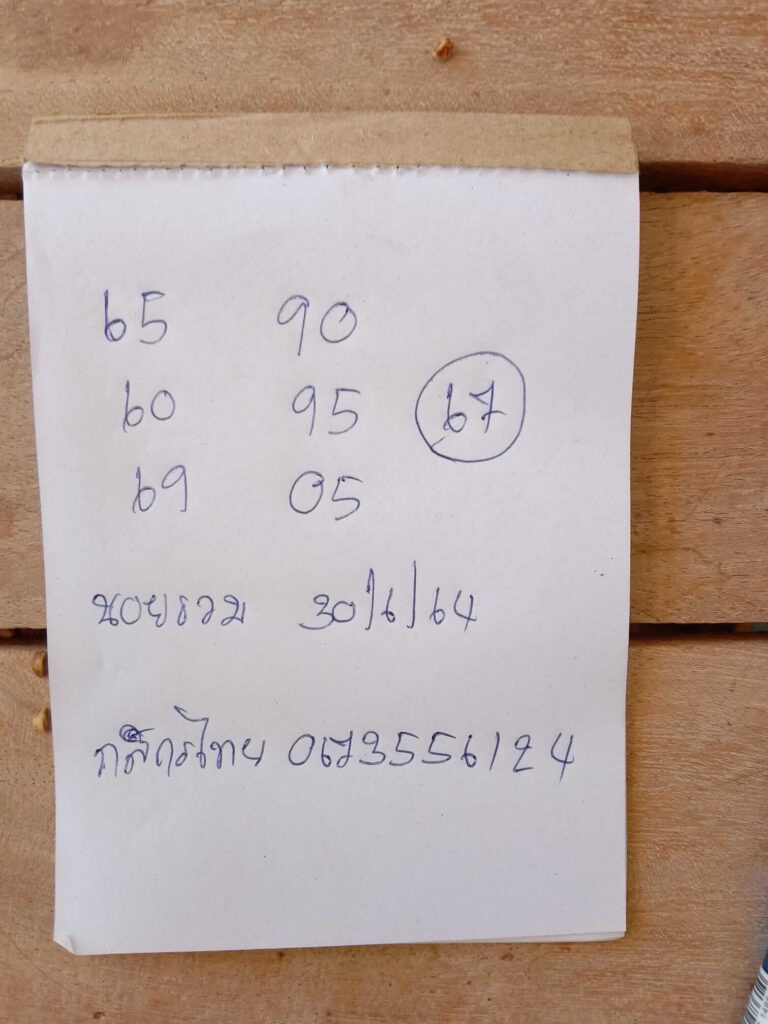 65 90
60 95 67
69 05
นอยรวม 30/6/64
กสิกรไทย 0673556124